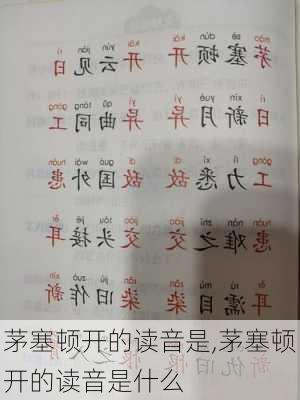 máo sè dùn kāi kāi yún jiàn rì
茅塞顿开 开云见日
rì xīn yuè yì yì qǔ tóng gōng
日新月异 异曲同工
gōng lì xī dí dí guó wài huàn
工力悉敌 敌国外患
huàn nàn zhī jiāo jiāo tóu jiē ěr
患难之交 交头接耳
ěr rú mù rǎn rǎn jiù zuò xīn
耳濡目染 染旧作新
新仇旧恨 恨之入
茅塞顿开的读音是,茅塞顿
开的读音是什么